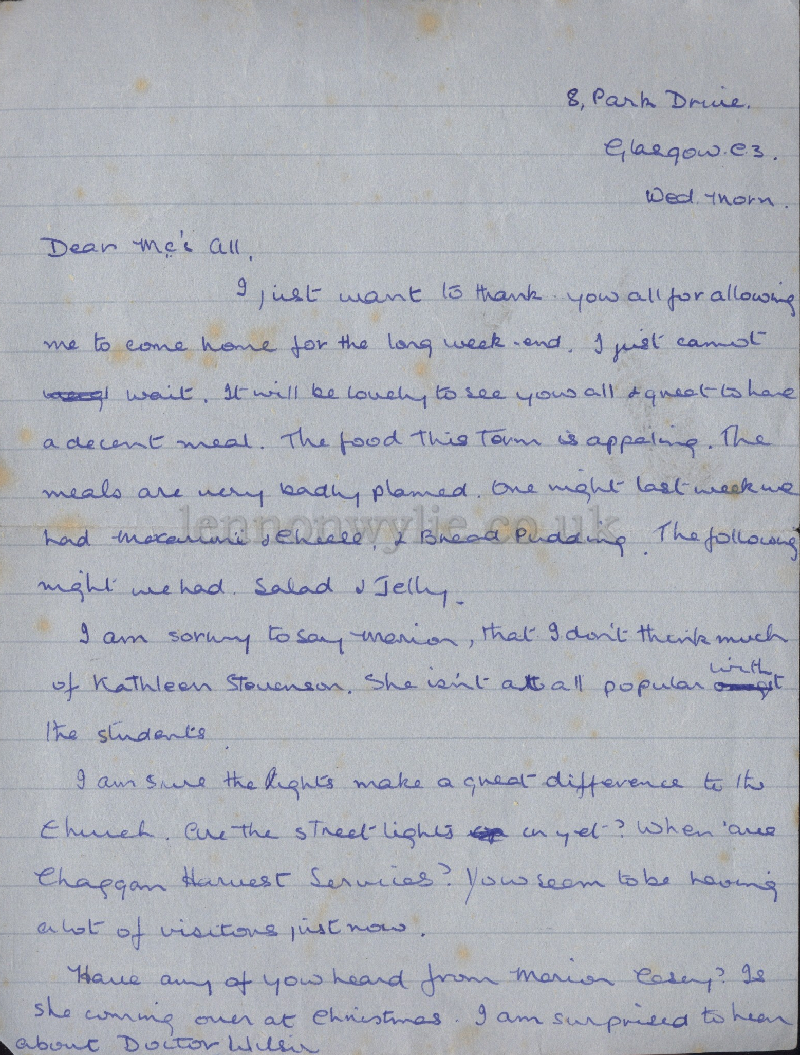 8, Park Drive.
Glasgow. C3.
Wed. Morn.
Dear Mc's All,
I just want to thank you all for allowing
me to come home for the long week-end. I just cannot
wait. It will be lovely to see you all & great to have
a decent meal. The food this Term is appaling. The
meals are very badly planned. One night last week we
lennonwylie.co.uk
had Macaroni & Cheese, & Bread Pudding. The following
night we had Salad & Jelly.
I am sorry to say Marion, that I don't think much
of Kathleen Stevenson. She isn't at all popular with
the students
I am sure the lights make a great difference to the
Church. Are the street lights in yet? When are
Craggan Harvest Services? You seem to be having
a lot of visitors just now.
Have any of you heard from Marion Casey? Is
she coming over at Christmas. I am surprised to hear
about Doctor Wilson